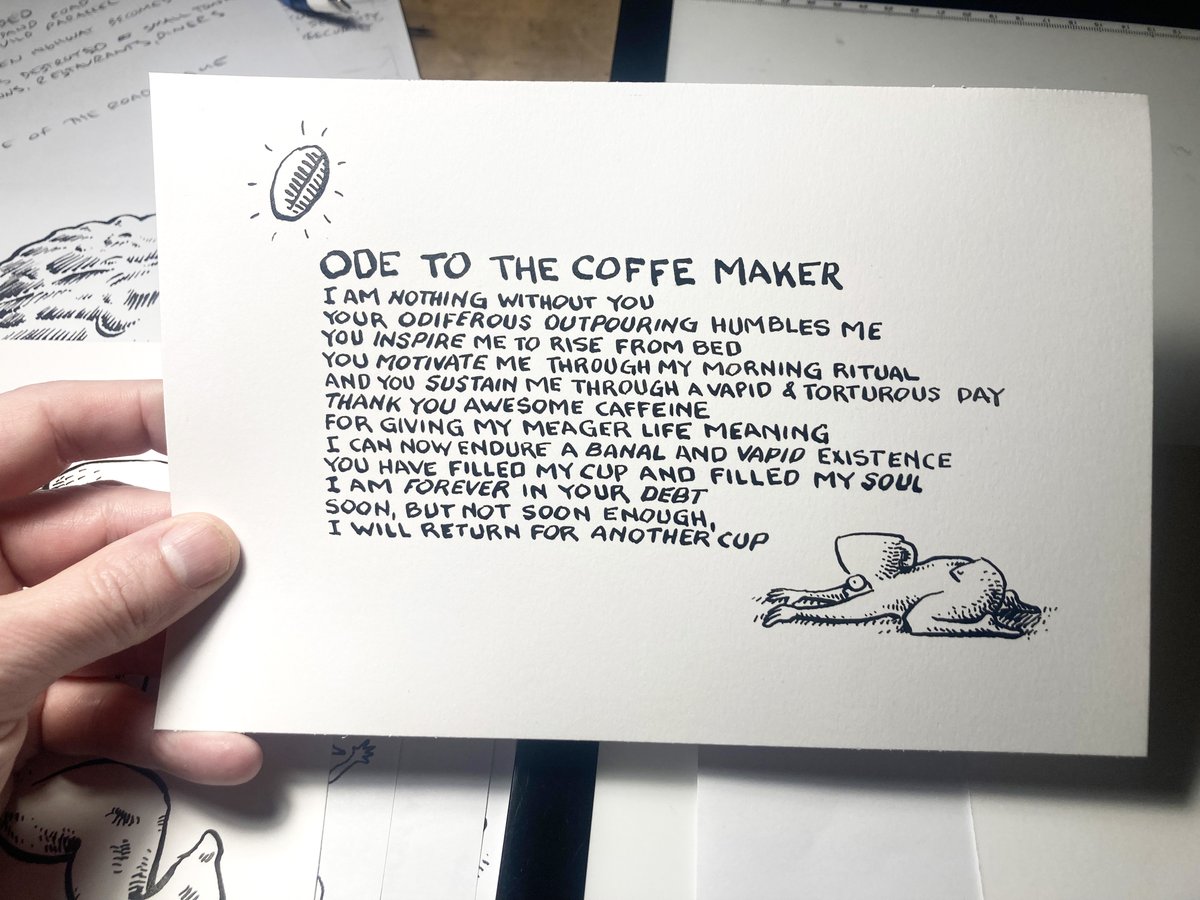 DED
PAND ROAD
VILD PARALLEL
EN HIGHWAY BECOMES
S DESTROYED & SMALL TOWN
ONS, RESTAURANTS, DINERS
E OF THE ROAD
SECURITY
ODE TO THE COFFE MAKER
I AM NOTHING WITHOUT YOU
YOUR ODIFEROUS OUTPOURING HUMBLES ME
YOU INSPIRE ME TO RISE FROM BED
YOU MOTIVATE ME THROUGH MY MORNING RITUAL
AND YOU SUSTAIN ME THROUGH A VAPID & TORTUROUS DAY
THANK YOU AWESOME CAFFEINE
FOR GIVING MY MEAGER LIFE MEANING
I CAN NOW ENDURE A BANAL AND VAPID EXISTENCE
YOU HAVE FILLED MY CUP AND FILLED MY SOUL
I AM FOREVER IN YOUR DEBT
SOON, BUT NOT SOON ENOUGH,
I WILL RETURN FOR ANOTHER CUP